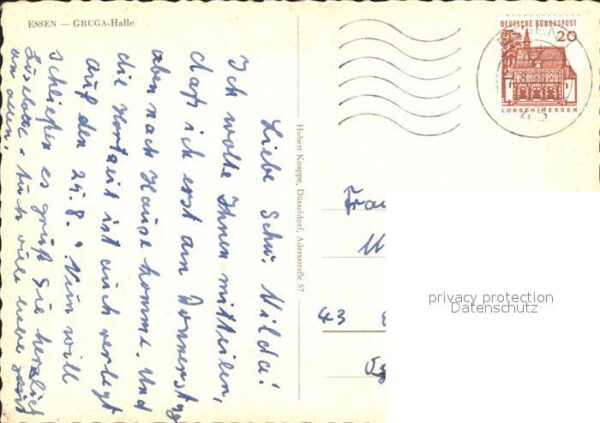 ESSEN — GRUGA-Halle
Liebe Schw. Hilda!
Ich wollte Ihnen mitteilen,
daß ich erst am Donnerstag
aben nach Hause komme. Und
die Hochzeit ist auch verlegt
auf den 29.8. Nun will
schließen es grüßt Sie herzlich
Liselotte
auch viele liebe
an
Hubert Knappe, Düsseldorf, Adersstraße 57
DEUTSCHE BUNDESPOST
20
LORSCH/HESSEN
ESSEN
Frau
43
privacy protection
Datenschutz